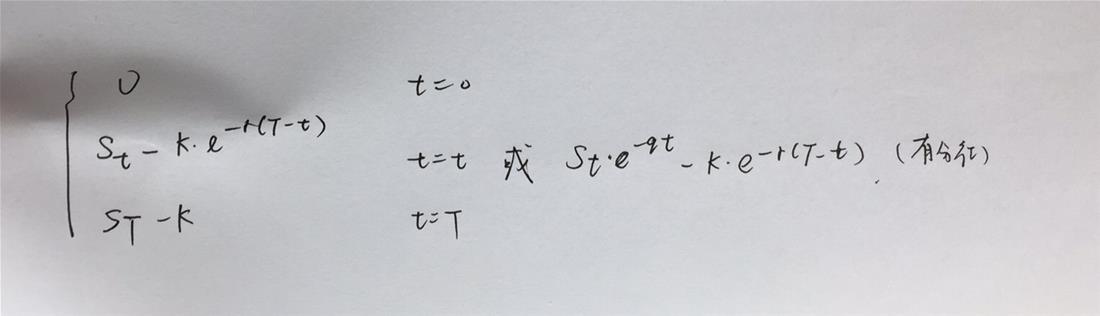 0 t=0
St - K·e^-r(T-t) t=t 或 St·e^-qt - K·e^-r(T-t) (有分红)
ST - K t=T